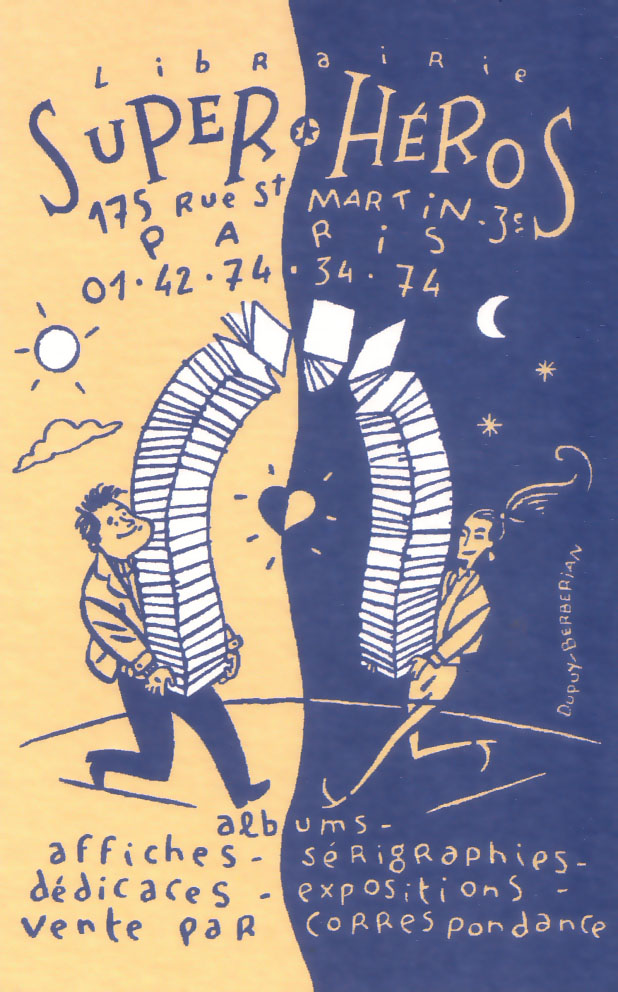 Librairie
SUPER HÉROS
175 Rue St MARTiN. 3e
PARiS
01.42.74.34.74
DUPUY-BERBERIAN
albums-
affiches- séRigRaphies-
dédicaces - expositions -
vente paR coRRespondance